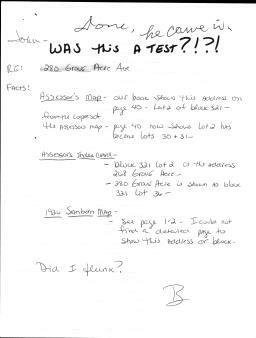 Done, he came in.
John -
WAS this A TEST?!?!
RE: 280 Grove Acre Ave
FACTS:
Assessor's Map - our book shows this address on
page 40 - Lot 2 of block 321 -
from the copies of
the assessors map - page 40 now shows Lot 2 has
become lots 30 + 31 -
Assessors Index Card -
- block 321 lot 2 is the address
268 Grove Acre -
- 280 Grove Acre is shown to block
321 Lot 30 -
1926 Sanborn Map -
- See page 1-2 - I could not
find a detailed page to
show this address or block -
Did I flunk?
B